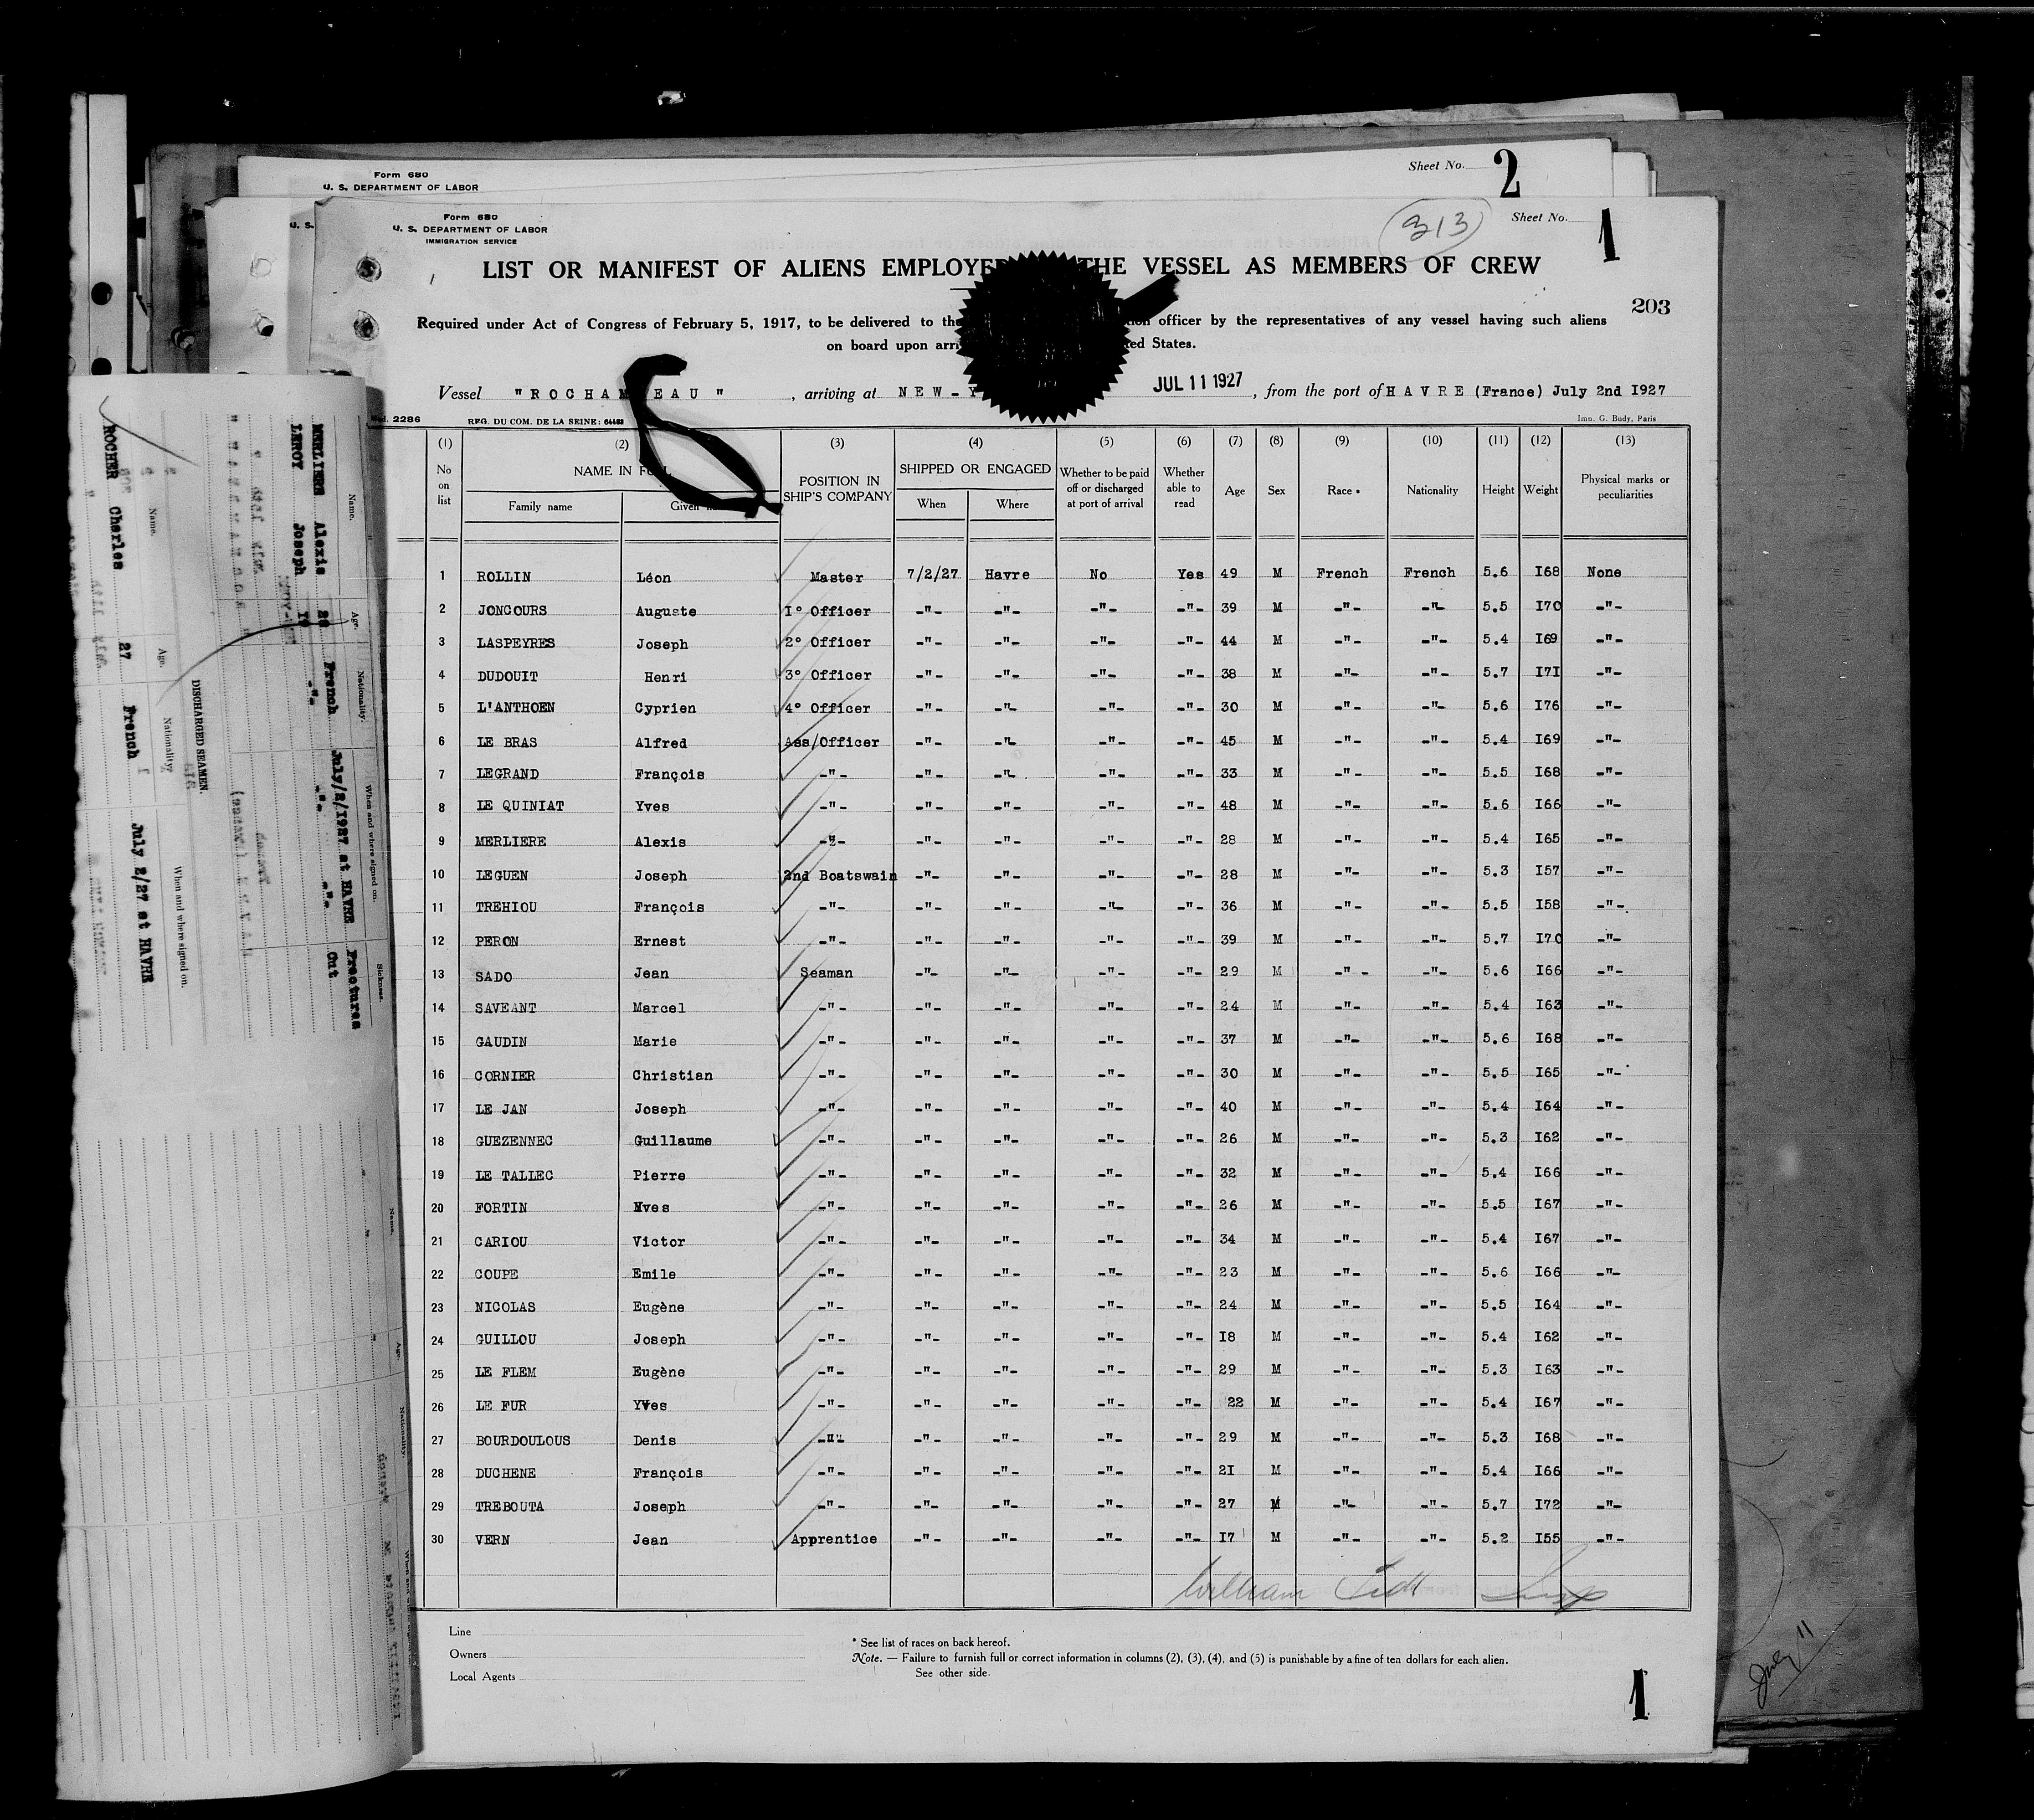 Form 680
U. S. DEPARTMENT OF LABOR
Sheet No. 2
U. S.
Form 680
U. S. DEPARTMENT OF LABOR
IMMIGRATION SERVICE
313
Sheet No. 1
LIST OR MANIFEST OF ALIENS EMPLOYE THE VESSEL AS MEMBERS OF CREW
203
Required under Act of Congress of February 5, 1917, to be delivered to the officer by the representatives of any vessel having such aliens
on board upon arri ed States.
Vessel "ROCHAM EAU", arriving at NEW-Y JUL 11 1927, from the port of HAVRE (France) July 2nd I927
Mod. 2286 REG. DU COM. DE LA SEINE: 64483 Imp. G. Budy, Paris
(1) (2) (3) (4) (5) (6) (7) (8) (9) (10) (11) (12) (13)
No on list NAME IN FULL Family name Given POSITION IN SHIP'S COMPANY SHIPPED OR ENGAGED When Where Whether to be paid off or discharged at port of arrival Whether able to read Age Sex Race * Nationality Height Weight Physical marks or peculiarities
1 ROLLIN Léon Master 7/2/27 Havre No Yes 49 M French French 5.6 I68 None
2 JONCOURS Auguste I° Officer -"- -"- -"- -"- 39 M -"- -"- 5.5 I70 -"-
3 LASPEYRES Joseph 2° Officer -"- -"- -"- -"- 44 M -"- -"- 5.4 I69 -"-
4 DUDOUIT Henri 3° Officer -"- -"- -"- -"- 38 M -"- -"- 5.7 I7I -"-
5 L'ANTHOEN Cyprien 4° Officer -"- -"- -"- -"- 30 M -"- -"- 5.6 I76 -"-
6 LE BRAS Alfred Ass/Officer -"- -"- -"- -"- 45 M -"- -"- 5.4 I69 -"-
7 LEGRAND François -"- -"- -"- -"- -"- 33 M -"- -"- 5.5 I68 -"-
8 LE QUINIAT Yves -"- -"- -"- -"- -"- 48 M -"- -"- 5.6 I66 -"-
9 MERLIERE Alexis -"- -"- -"- -"- -"- 28 M -"- -"- 5.4 I65 -"-
10 LEGUEN Joseph 2nd Boatswain -"- -"- -"- -"- 28 M -"- -"- 5.3 I57 -"-
11 TREHIOU François -"- -"- -"- -"- -"- 36 M -"- -"- 5.5 I58 -"-
12 PERON Ernest -"- -"- -"- -"- -"- 39 M -"- -"- 5.7 I70 -"-
13 SADO Jean Seaman -"- -"- -"- -"- 29 M -"- -"- 5.6 I66 -"-
14 SAVEANT Marcel -"- -"- -"- -"- -"- 24 M -"- -"- 5.4 I63 -"-
15 GAUDIN Marie -"- -"- -"- -"- -"- 37 M -"- -"- 5.6 I68 -"-
16 CORNIER Christian -"- -"- -"- -"- -"- 30 M -"- -"- 5.5 I65 -"-
17 LE JAN Joseph -"- -"- -"- -"- -"- 40 M -"- -"- 5.4 I64 -"-
18 GUEZENNEC Guillaume -"- -"- -"- -"- -"- 26 M -"- -"- 5.3 I62 -"-
19 LE TALLEC Pierre -"- -"- -"- -"- -"- 32 M -"- -"- 5.4 I66 -"-
20 FORTIN Yves -"- -"- -"- -"- -"- 26 M -"- -"- 5.5 I67 -"-
21 CARIOU Victor -"- -"- -"- -"- -"- 34 M -"- -"- 5.4 I67 -"-
22 COUPE Emile -"- -"- -"- -"- -"- 23 M -"- -"- 5.6 I66 -"-
23 NICOLAS Eugène -"- -"- -"- -"- -"- 24 M -"- -"- 5.5 I64 -"-
24 GUILLOU Joseph -"- -"- -"- -"- -"- I8 M -"- -"- 5.4 I62 -"-
25 LE FLEM Eugène -"- -"- -"- -"- -"- 29 M -"- -"- 5.3 I63 -"-
26 LE FUR Yves -"- -"- -"- -"- -"- 22 M -"- -"- 5.4 I67 -"-
27 BOURDOULOUS Denis -"- -"- -"- -"- -"- 29 M -"- -"- 5.3 I68 -"-
28 DUCHENE François -"- -"- -"- -"- -"- 2I M -"- -"- 5.4 I66 -"-
29 TREBOUTA Joseph -"- -"- -"- -"- -"- 27 M -"- -"- 5.7 I72 -"-
30 VERN Jean Apprentice -"- -"- -"- -"- I7 M -"- -"- 5.2 I55 -"-
William
Line
Owners
Local Agents
* See list of races on back hereof.
Note. — Failure to furnish full or correct information in columns (2), (3), (4), and (5) is punishable by a fine of ten dollars for each alien.
See other side.
1
July 11
Name. Age. Nationality. When and where signed on. Sickness.
MERLIERE Alexis 28 French July/2/1927 at HAVRE Fractures
LEROY Joseph I9 -"- -"- -"- Cut
DISCHARGED SEAMEN.
Name. Age. Nationality. When and where signed on.
ROCHER Charles 27 French July 2/27 at HAVRE
Name. Age. Nationality.